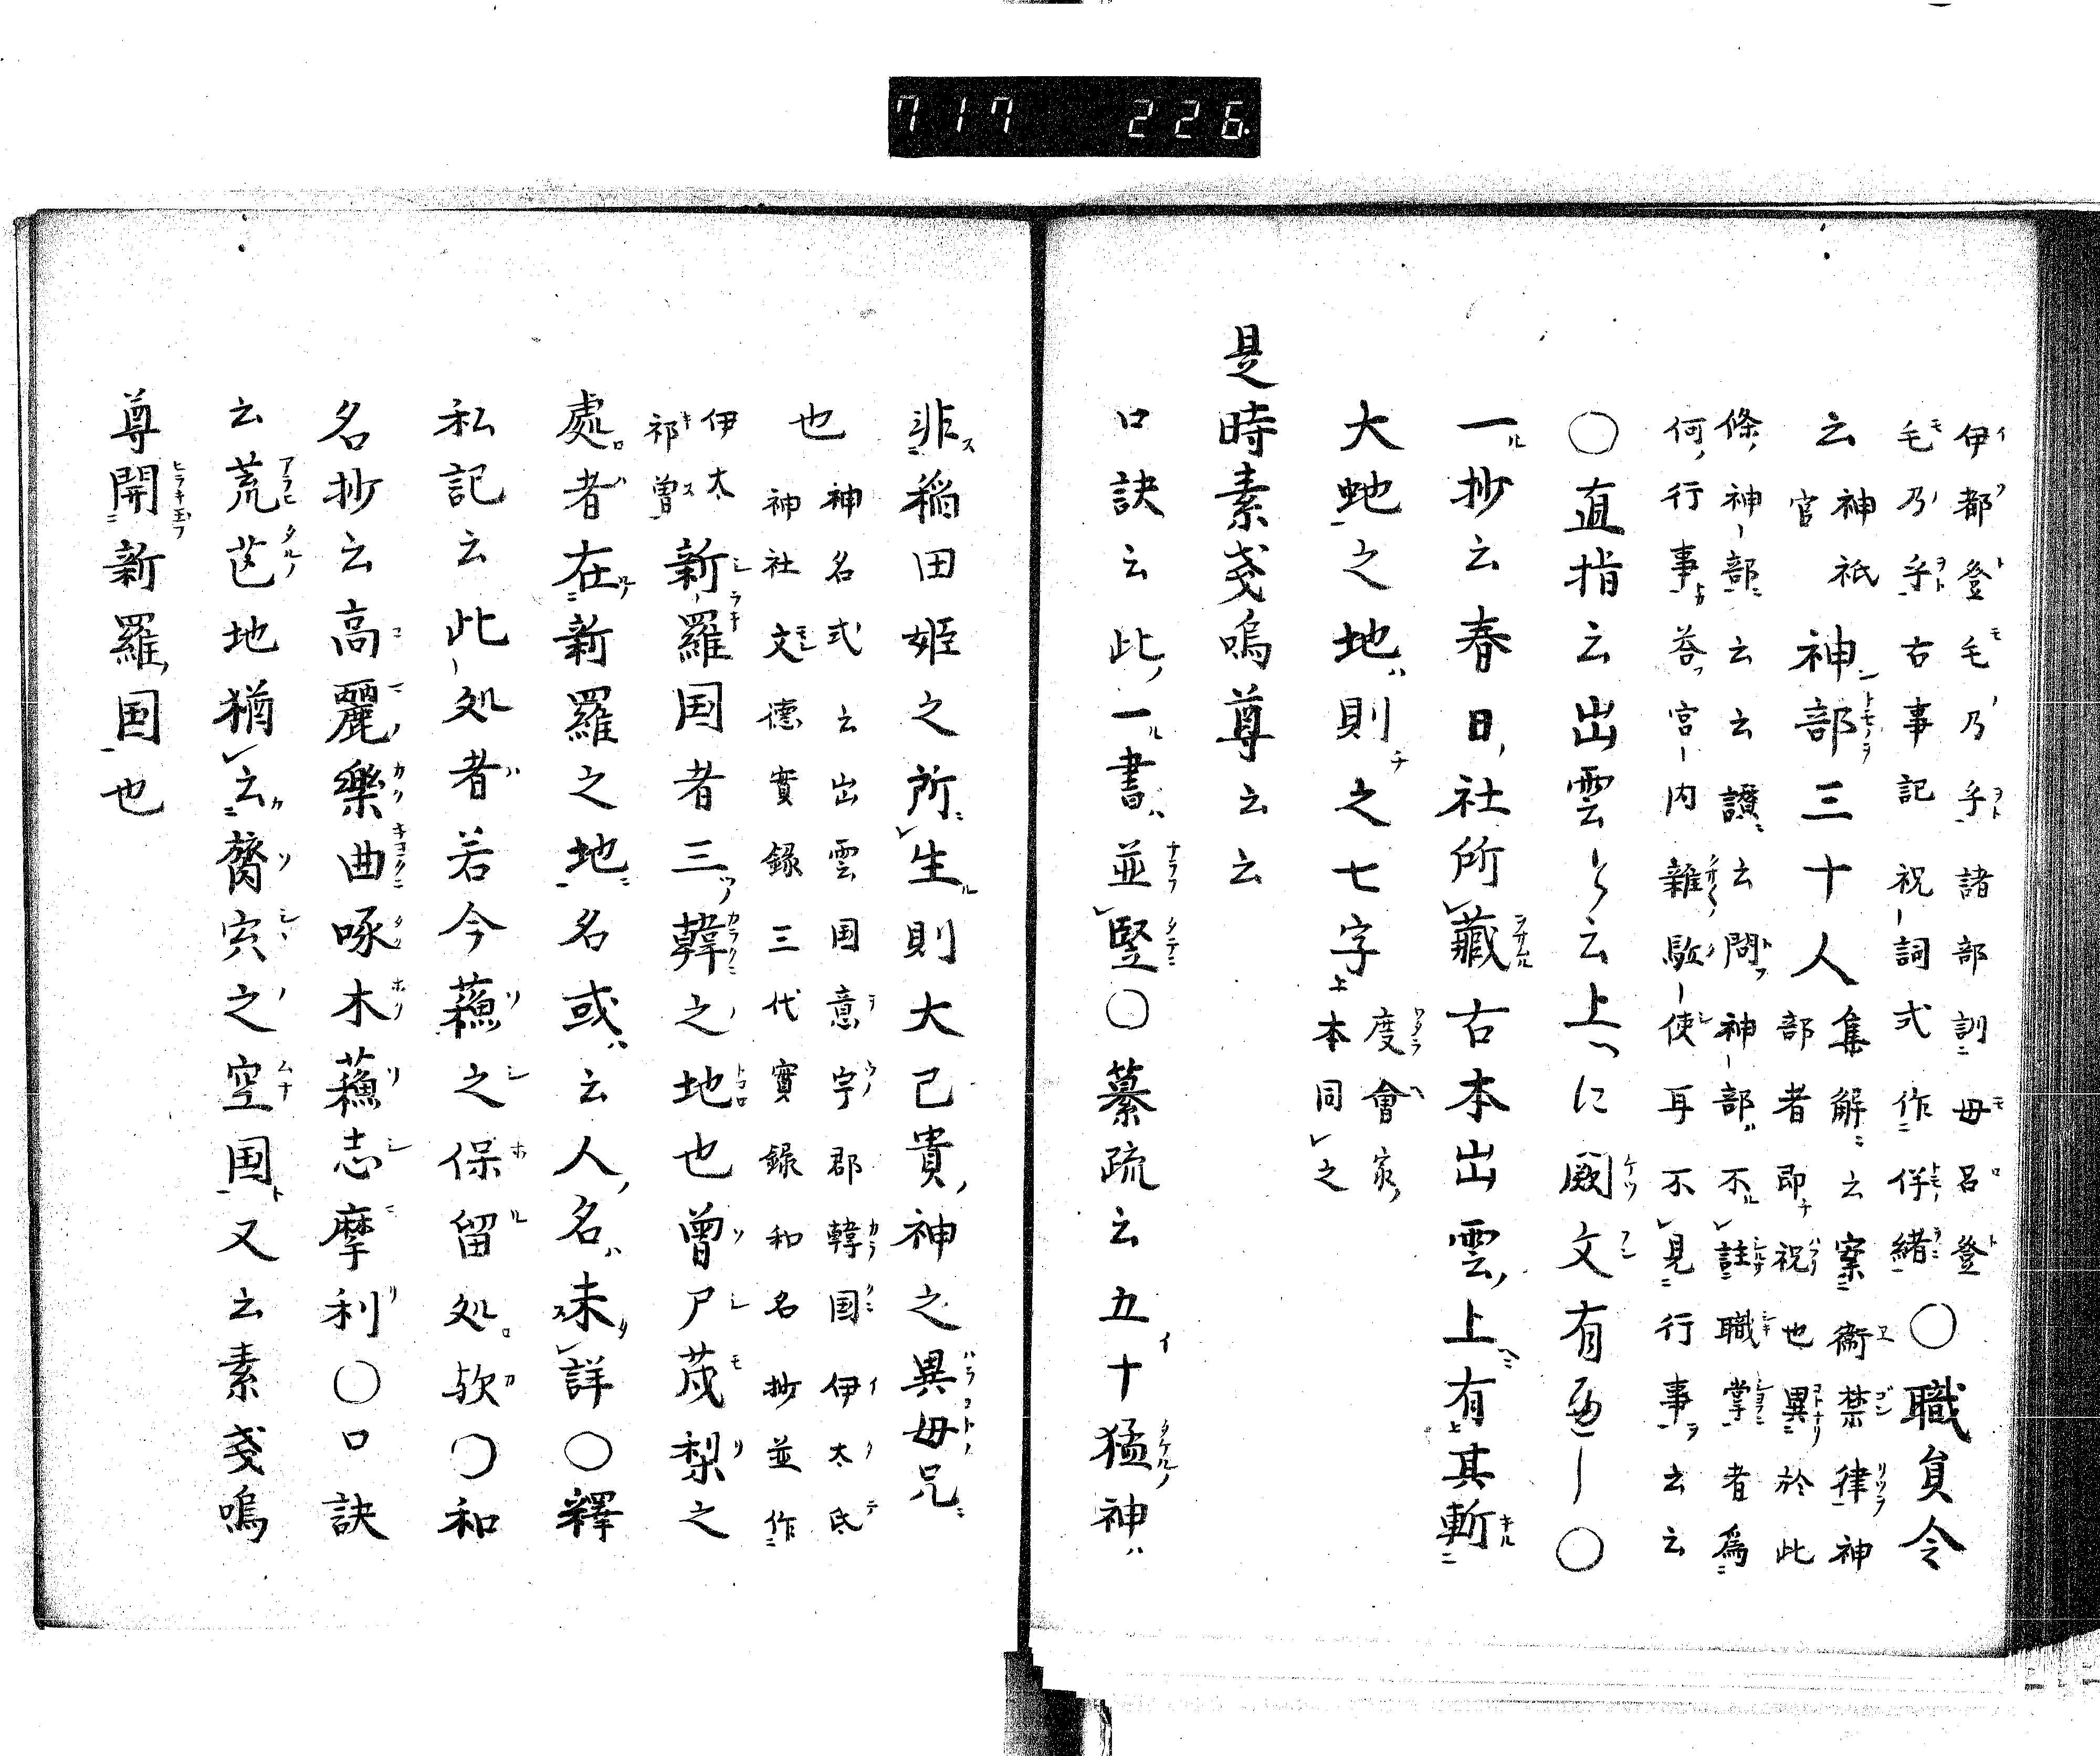 717 226
伊都登毛乃乎諸部訓毋呂登
毛乃乎古事記祝詞式作伴緒
〇職員令
云
神祇
官
神部三十人
集解云案衞禁律神
部者即祝也異於此
條神部云云讃云問神部不註職掌者爲
何行行事答宮内雜駈使耳不見行事云云
〇直指云出雲云上に闕文有〇
一抄云春日社所藏古本出雲上有其斬
大虵之地則之七字
度會家
本同之
是時素戔嗚尊云云
口訣云此一書並竪〇纂疏云五十猛神
非稲田姫之所生則大己貴神之異毋兄
也
神名式云出雲国意宇郡韓国伊太氐
神社文德實録三代實録和名抄並作
伊太
祁曽
新羅国者三韓之地也曽尸茂梨之
處者在新羅之地名或云人名未詳〇釋
私記云此処者若今蘓之保留処欤〇和
名抄云高麗樂曲啄木蘓志摩利〇口訣
云荒芒地猶云膂宍之空国又云素戔嗚
尊開新羅国也